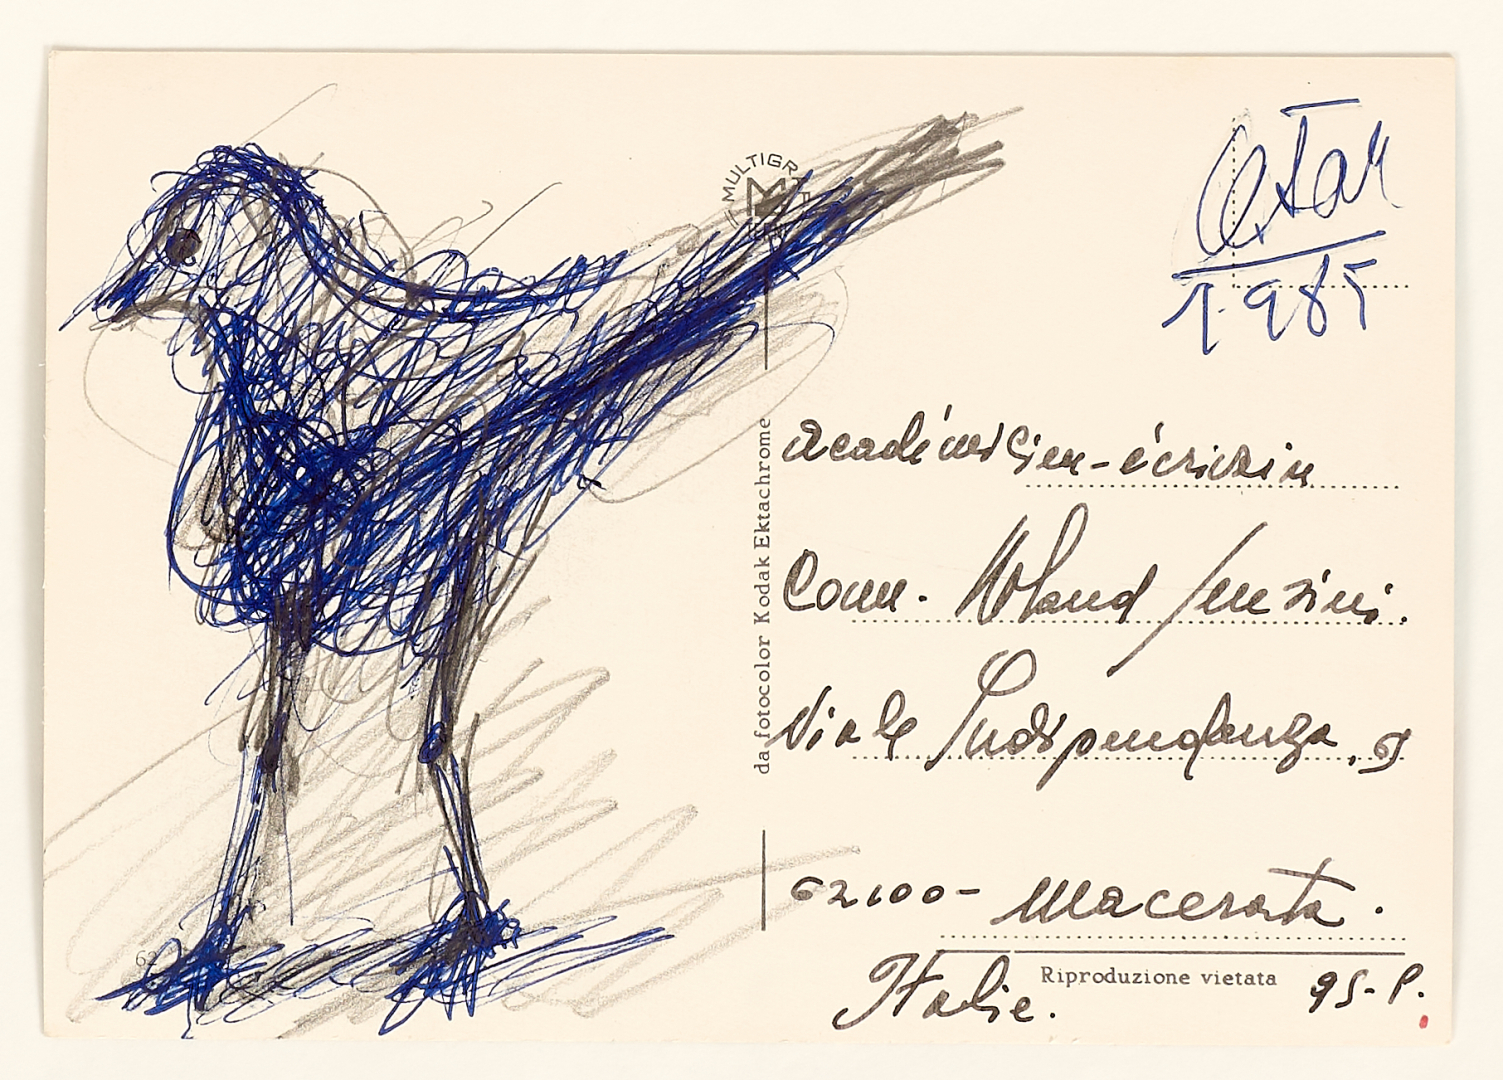 MULTIGR
1985
da fotocolor Kodak Ektachrome
académicien-écrivain
Comm. Roland
Viale Indipendenza,
62100- Macerata.
Italie.
Riproduzione vietata
95-P.